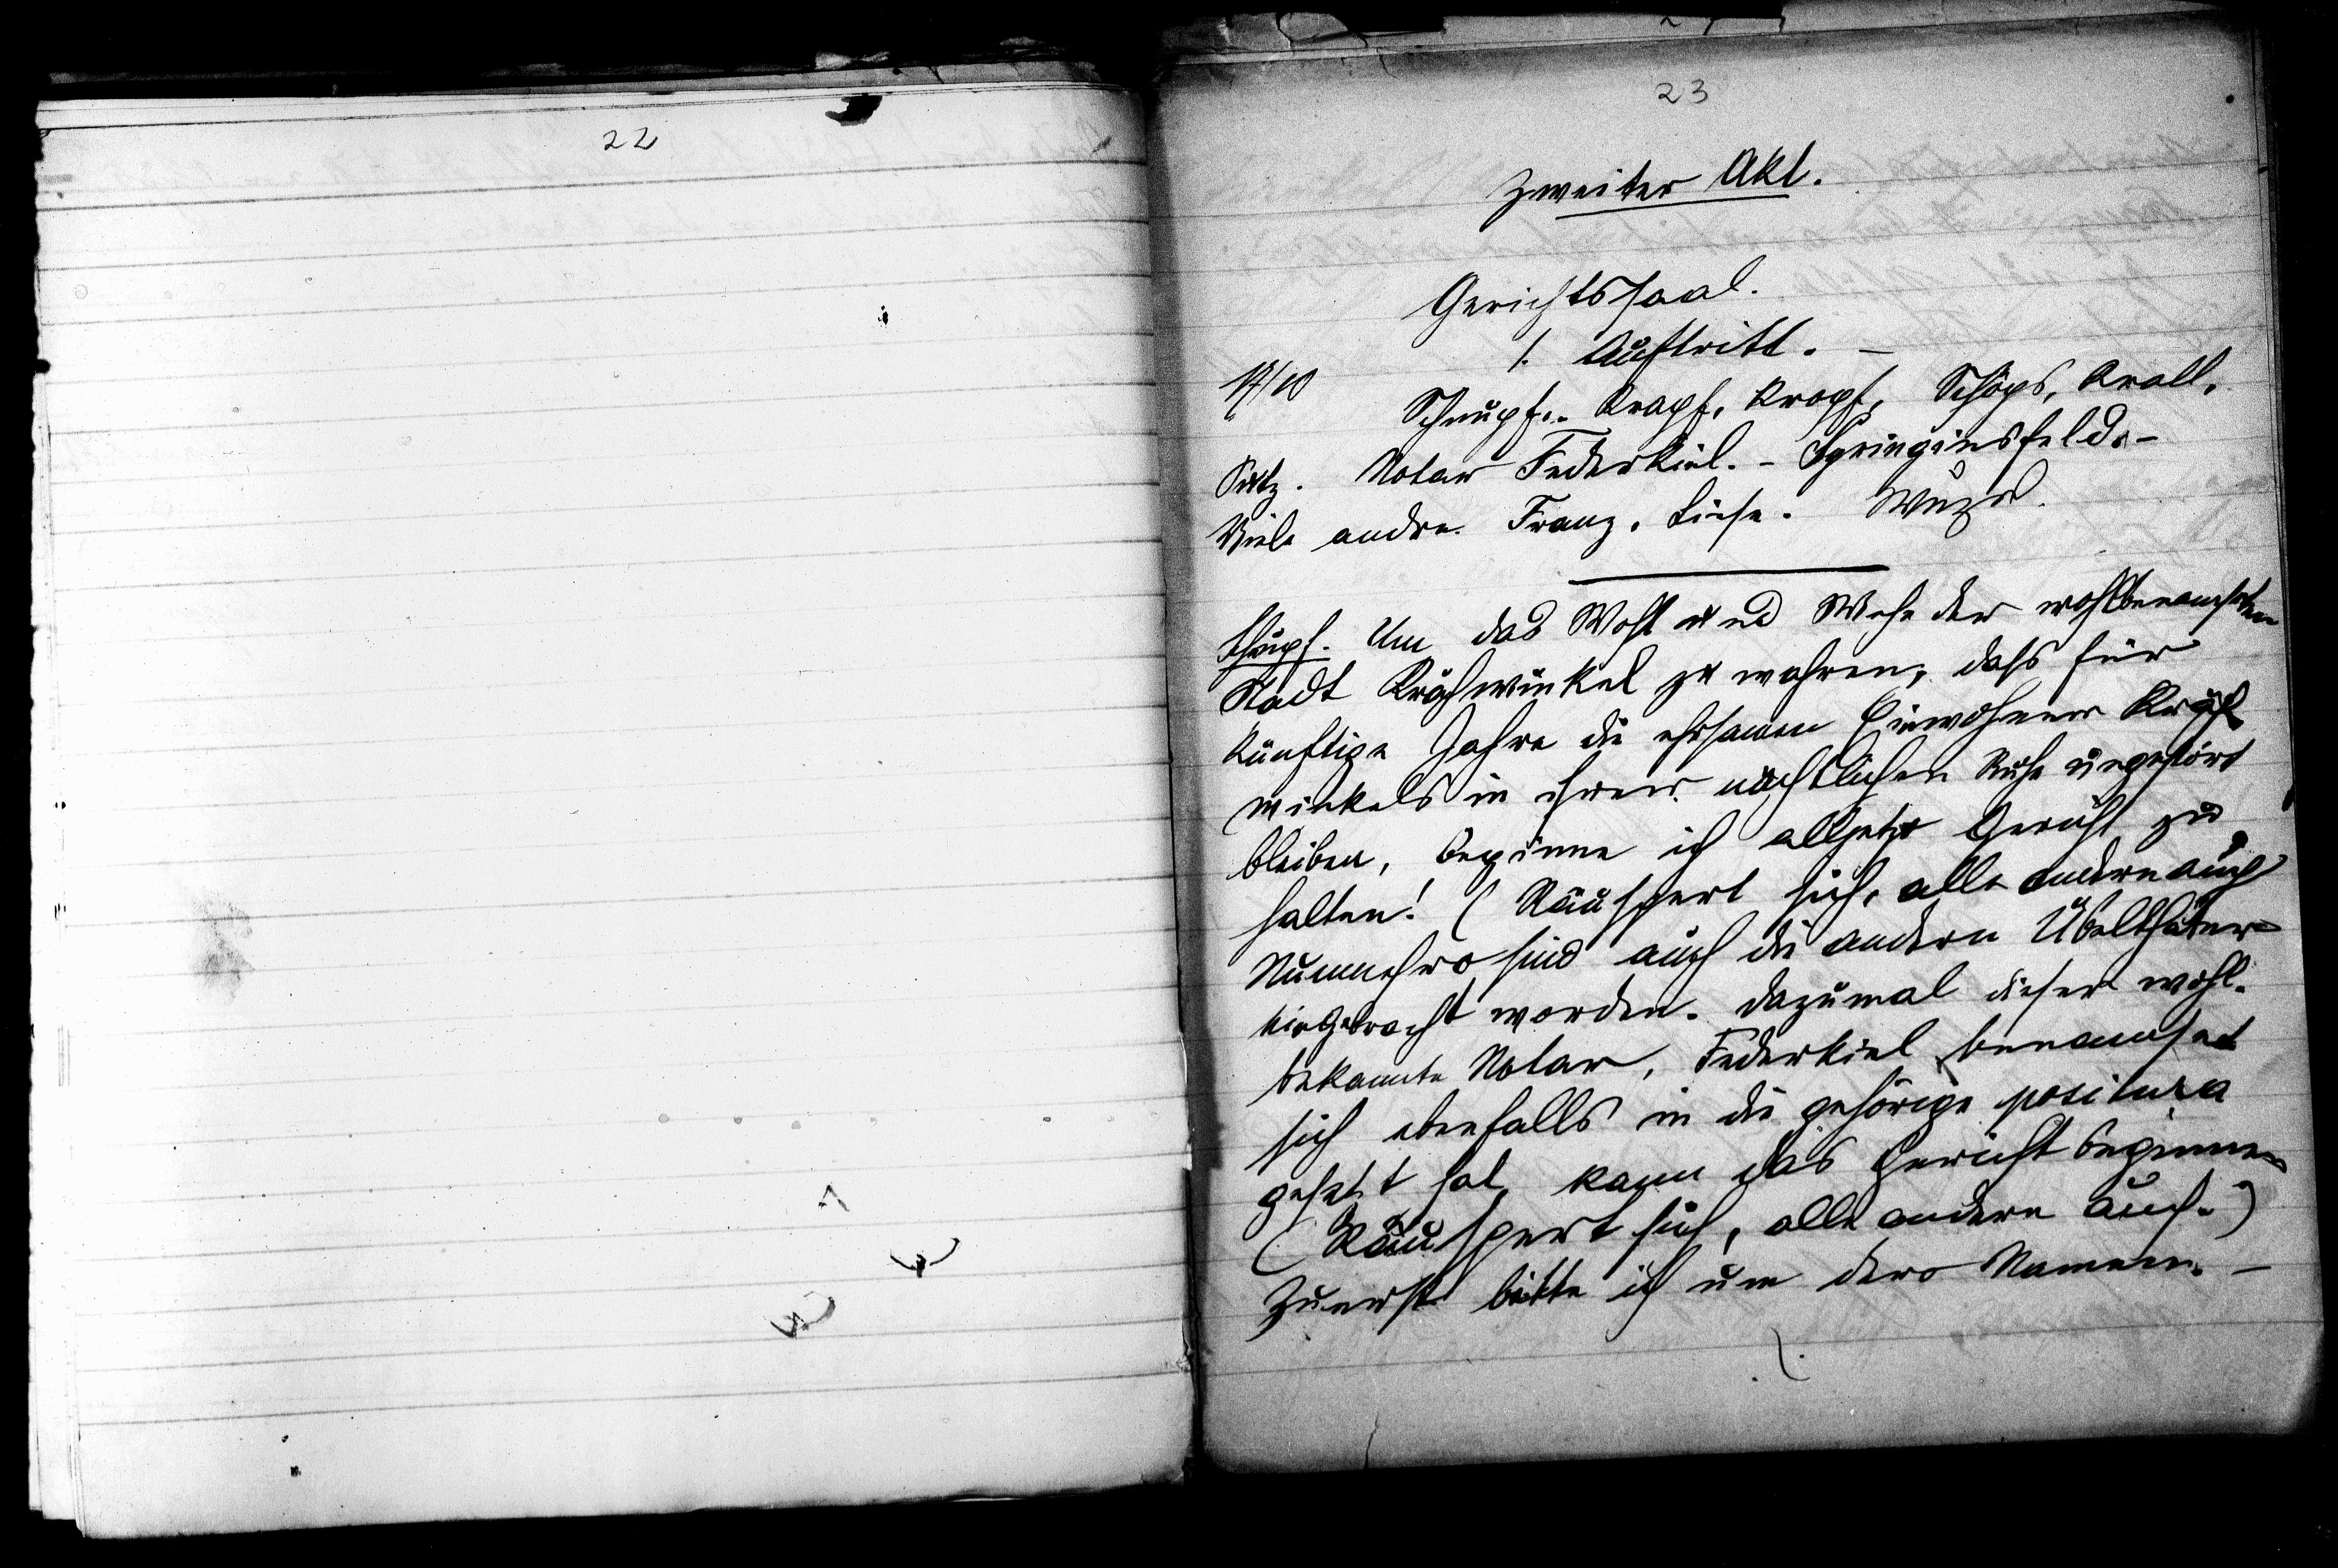 22
23
Zweiter Akt.
Gerichtssaal.
1. Auftritt. –
17/10
Schnupf.. Krapf, Kropf, Schöps, Krall,
Notar Federkiel. – Springinsfeld. –
Viele andre. Franz. Liese.
Schnupf. Um das Wohl und Wehe der wohlbenamsten
Stadt Krähwinkel zu wahren, dass für
künftige Jahre die ehrsamen Einwohner Kräh
winkels in ihrer nächtlichen Ruhe ungestört
bleiben, beginne ich alljetzt Gericht zu
halten! (Räuspert sich, alle andern auch
Nunmehro sind auch die andern Übelthäter
hiegebracht worden. Dazumal dieser wohl-
bekannte Notar, Federkiel benamset
sich ebenfalls in die gehörige positura
gesetzt hat, kann das Gericht beginnen
(Räuspert sich, alle andern auch.)
Zuerst bitte ich um dero Namen. –